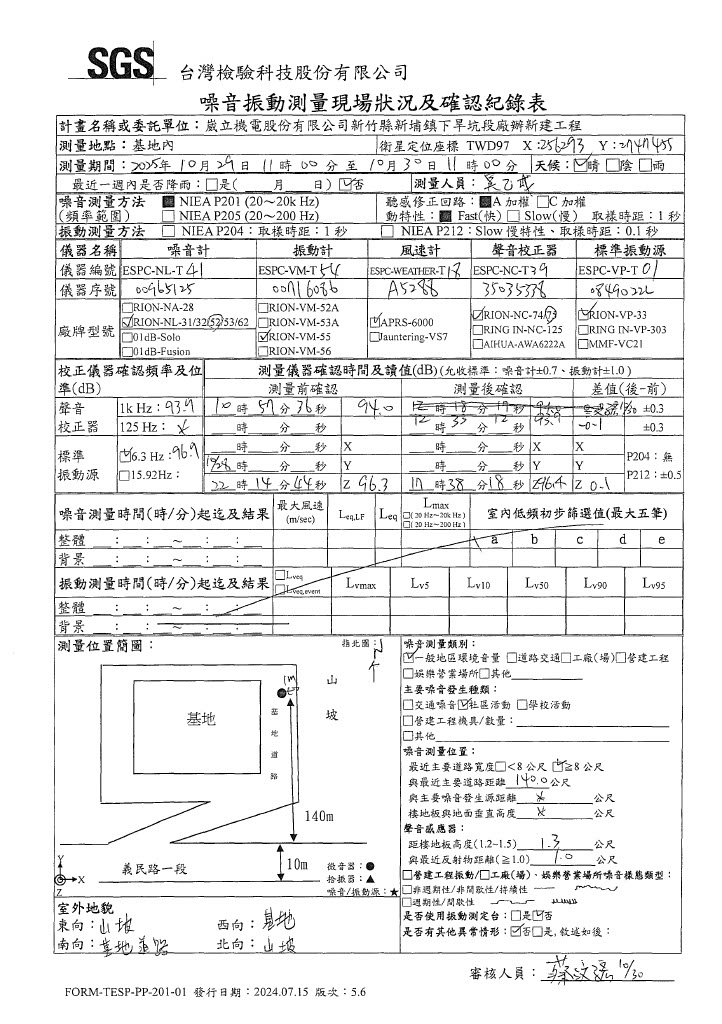 SGS 台灣檢驗科技股份有限公司
噪音振動測量現場狀況及確認紀錄表
計畫名稱或委託單位：崴立機電股份有限公司新竹縣新埔鎮下旱坑段廠辦新建工程
測量地點：基地內 衛星定位座標 TWD97 X:256293 Y:2747455
測量期間：2025年10月29日11時00分至10月30日11時00分 天候：☑晴 □陰 □雨
最近一週內是否降雨：□是( 月 日) ☑否 測量人員：
噪音測量方法 ■ NIEA P201 (20～20k Hz) 聽感修正回路：■A 加權 □C 加權
(頻率範圍) □ NIEA P205 (20～200 Hz) 動特性：■ Fast(快) □ Slow(慢) 取樣時距：1 秒
振動測量方法 □ NIEA P204：取樣時距：1 秒 □ NIEA P212：Slow 慢特性、取樣時距：0.1 秒
儀器名稱 噪音計 振動計 風速計 聲音校正器 標準振動源
儀器編號 ESPC-NL-T 41 ESPC-VM-T 54 ESPC-WEATHER-T 18 ESPC-NC-T 39 ESPC-VP-T 01
儀器序號 00965125 00716086 A5288 35035338 08490222
廠牌型號
□RION-NA-28 □RION-VM-52A
☑RION-NL-31/32/52/53/62 □RION-VM-53A ☑APRS-6000 ☑RION-NC-74/75 ☑RION-VP-33
□01dB-Solo ☑RION-VM-55 □Jauntering-VS7 □RING IN-NC-125 □RING IN-VP-303
□01dB-Fusion □RION-VM-56 □AIHUA-AWA6222A □MMF-VC21
校正儀器確認頻率及位準(dB) 測量儀器確認時間及讀值(dB)(允收標準：噪音計±0.7、振動計±1.0)
測量前確認 測量後確認 差值(後-前)
聲音 1k Hz：93.9 10時57分36秒 94.0 12時18分 ±0.3
校正器 125 Hz： 時 分 秒 12時33分12秒 93.9 -0.1 ±0.3
標準 ☑6.3 Hz：96.9 時 分 秒 X 時 分 秒 X X P204：無
振動源 □15.92Hz： 10/28 時 分 秒 Y 時 分 秒 Y Y P212：±0.5
22時14分44秒 Z 96.3 17時38分18秒 Z 96.4 Z 0.1
噪音測量時間(時/分)起迄及結果 最大風速(m/sec) Leq,LF Leq Lmax □(20 Hz~20k Hz) □(20 Hz~200 Hz) 室內低頻初步篩選值(最大五筆)
整體 ： ： ～ ： ： a b c d e
背景 ： ： ～ ： ：
振動測量時間(時/分)起迄及結果 □Lveq □Lveq,event Lvmax Lv5 Lv10 Lv50 Lv90 Lv95
整體 ： ： ～ ： ：
背景 ： ： ～ ： ：
測量位置簡圖： 指北圖：N
基地
1m
基地道路
山坡
140m
義民路一段
10m
Y
X
Z
微音器：●
拾振器：▲
噪音/振動源：★
噪音測量類別：
☑一般地區環境音量 □道路交通 □工廠(場) □營建工程
□娛樂營業場所 □其他
主要噪音發生種類：
□交通噪音 ☑社區活動 □學校活動
□營建工程機具/數量：
□其他
噪音測量位置：
最近主要道路寬度 □<8 公尺 ☑≧8 公尺
與最近主要道路距離 140.0 公尺
與主要噪音發生源距離 公尺
樓地板與地面垂直高度 公尺
聲音感應器：
距樓地板高度(1.2~1.5) 1.3 公尺
與最近反射物距離(≧1.0) 1.0 公尺
□營建工程振動/□工廠(場)、娛樂營業場所噪音樣態類型：
□非週期性/非間歇性/持續性
□週期性/間歇性
是否使用振動測定台：□是 ☑否
是否有其他異常情形：☑否 □是，敘述如後：
室外地貌
東向：山坡 西向：基地
南向：基地道路 北向：山坡
審核人員： 10/30
FORM-TESP-PP-201-01 發行日期：2024.07.15 版次：5.6